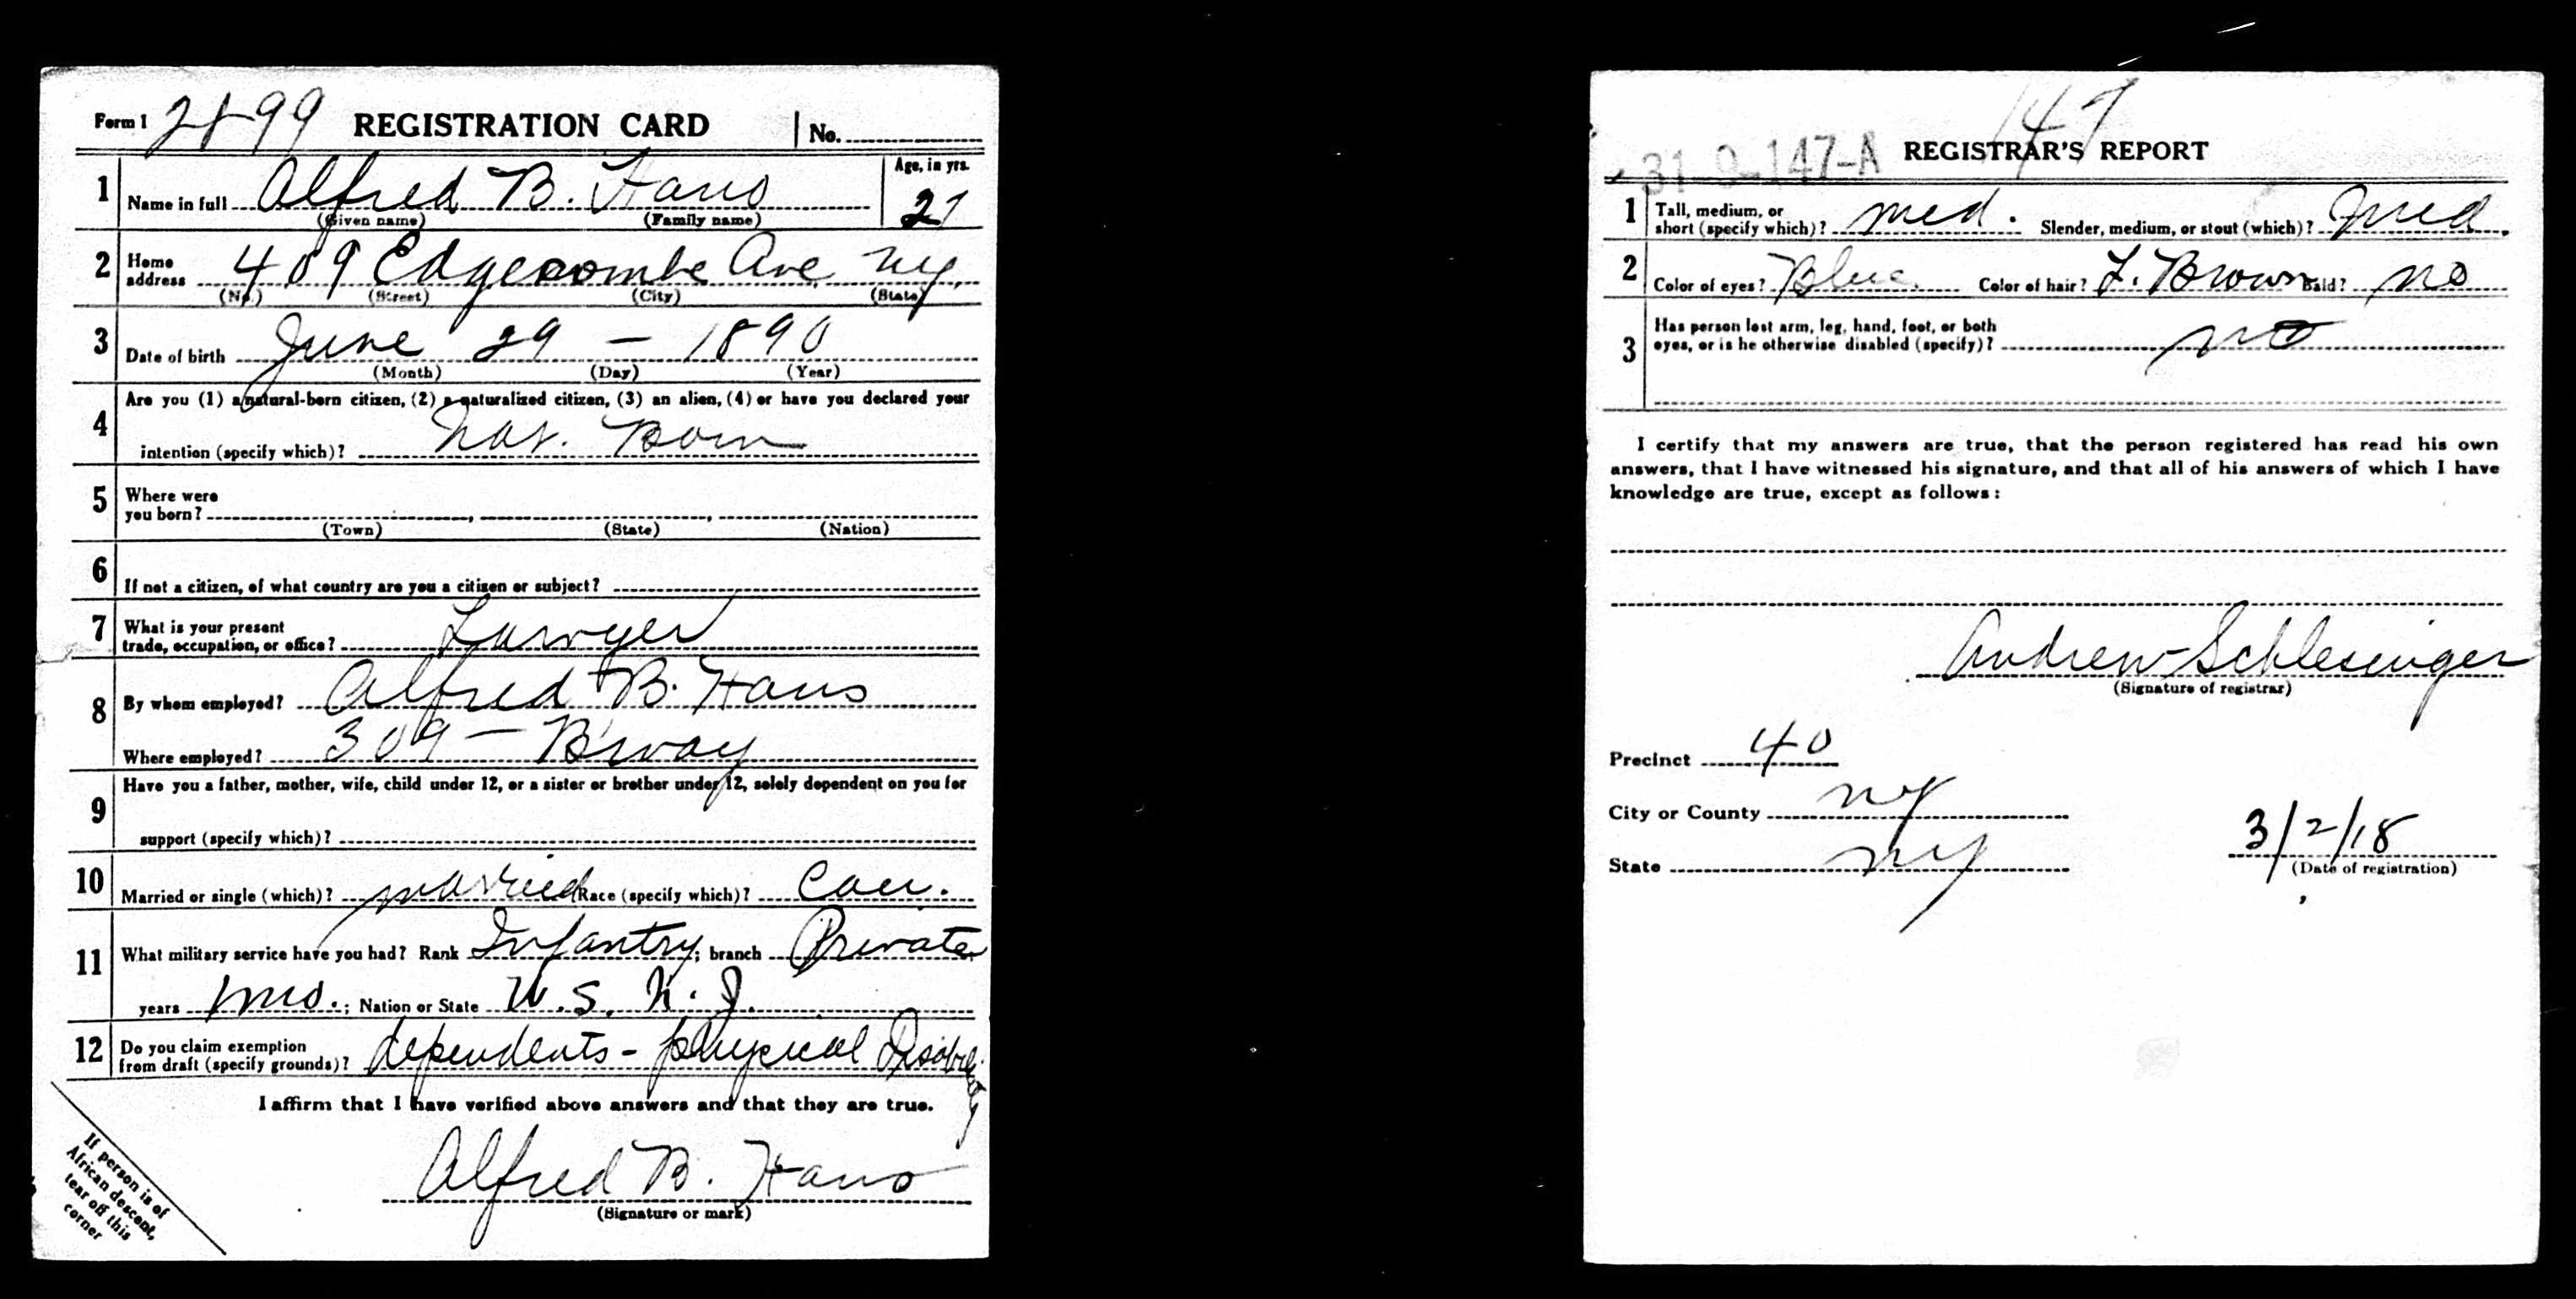 Form 1 2899 REGISTRATION CARD No.
1 Name in full Alfred B. Hano Age, in yrs. 27
(Given name) (Family name)
2 Home address 409 Edgecombe Ave NY.
(No.) (Street) (City) (State)
3 Date of birth June 29 - 1890
(Month) (Day) (Year)
4 Are you (1) a natural-born citizen, (2) a naturalized citizen, (3) an alien, (4) or have you declared your
intention (specify which)? Nat. Born
5 Where were
you born?
(Town) (State) (Nation)
6 If not a citizen, of what country are you a citizen or subject?
7 What is your present
trade, occupation, or office? Lawyer
8 By whom employed? Alfred B. Hano
Where employed? 309 - Bway
9 Have you a father, mother, wife, child under 12, or a sister or brother under 12, solely dependent on you for
support (specify which)?
10 Married or single (which)? married Race (specify which)? Cau.
11 What military service have you had? Rank Infantry; branch Private
years 1 mo.; Nation or State U.S. N.J.
12 Do you claim exemption
from draft (specify grounds)? dependents - physical Disability
I affirm that I have verified above answers and that they are true.
Alfred B. Hano
(Signature or mark)
If person is of
African descent,
tear off this
corner
147
31-9-147-A REGISTRAR'S REPORT
1 Tall, medium, or
short (specify which)? med. Slender, medium, or stout (which)? Med.
2 Color of eyes? Blue Color of hair? L. Brown Bald? no
3 Has person lost arm, leg, hand, foot, or both
eyes, or is he otherwise disabled (specify)? no
I certify that my answers are true, that the person registered has read his own
answers, that I have witnessed his signature, and that all of his answers of which I have
knowledge are true, except as follows:
Andrew Schlesinger
(Signature of registrar)
Precinct 40
City or County NY
State NY
3/2/18
(Date of registration)